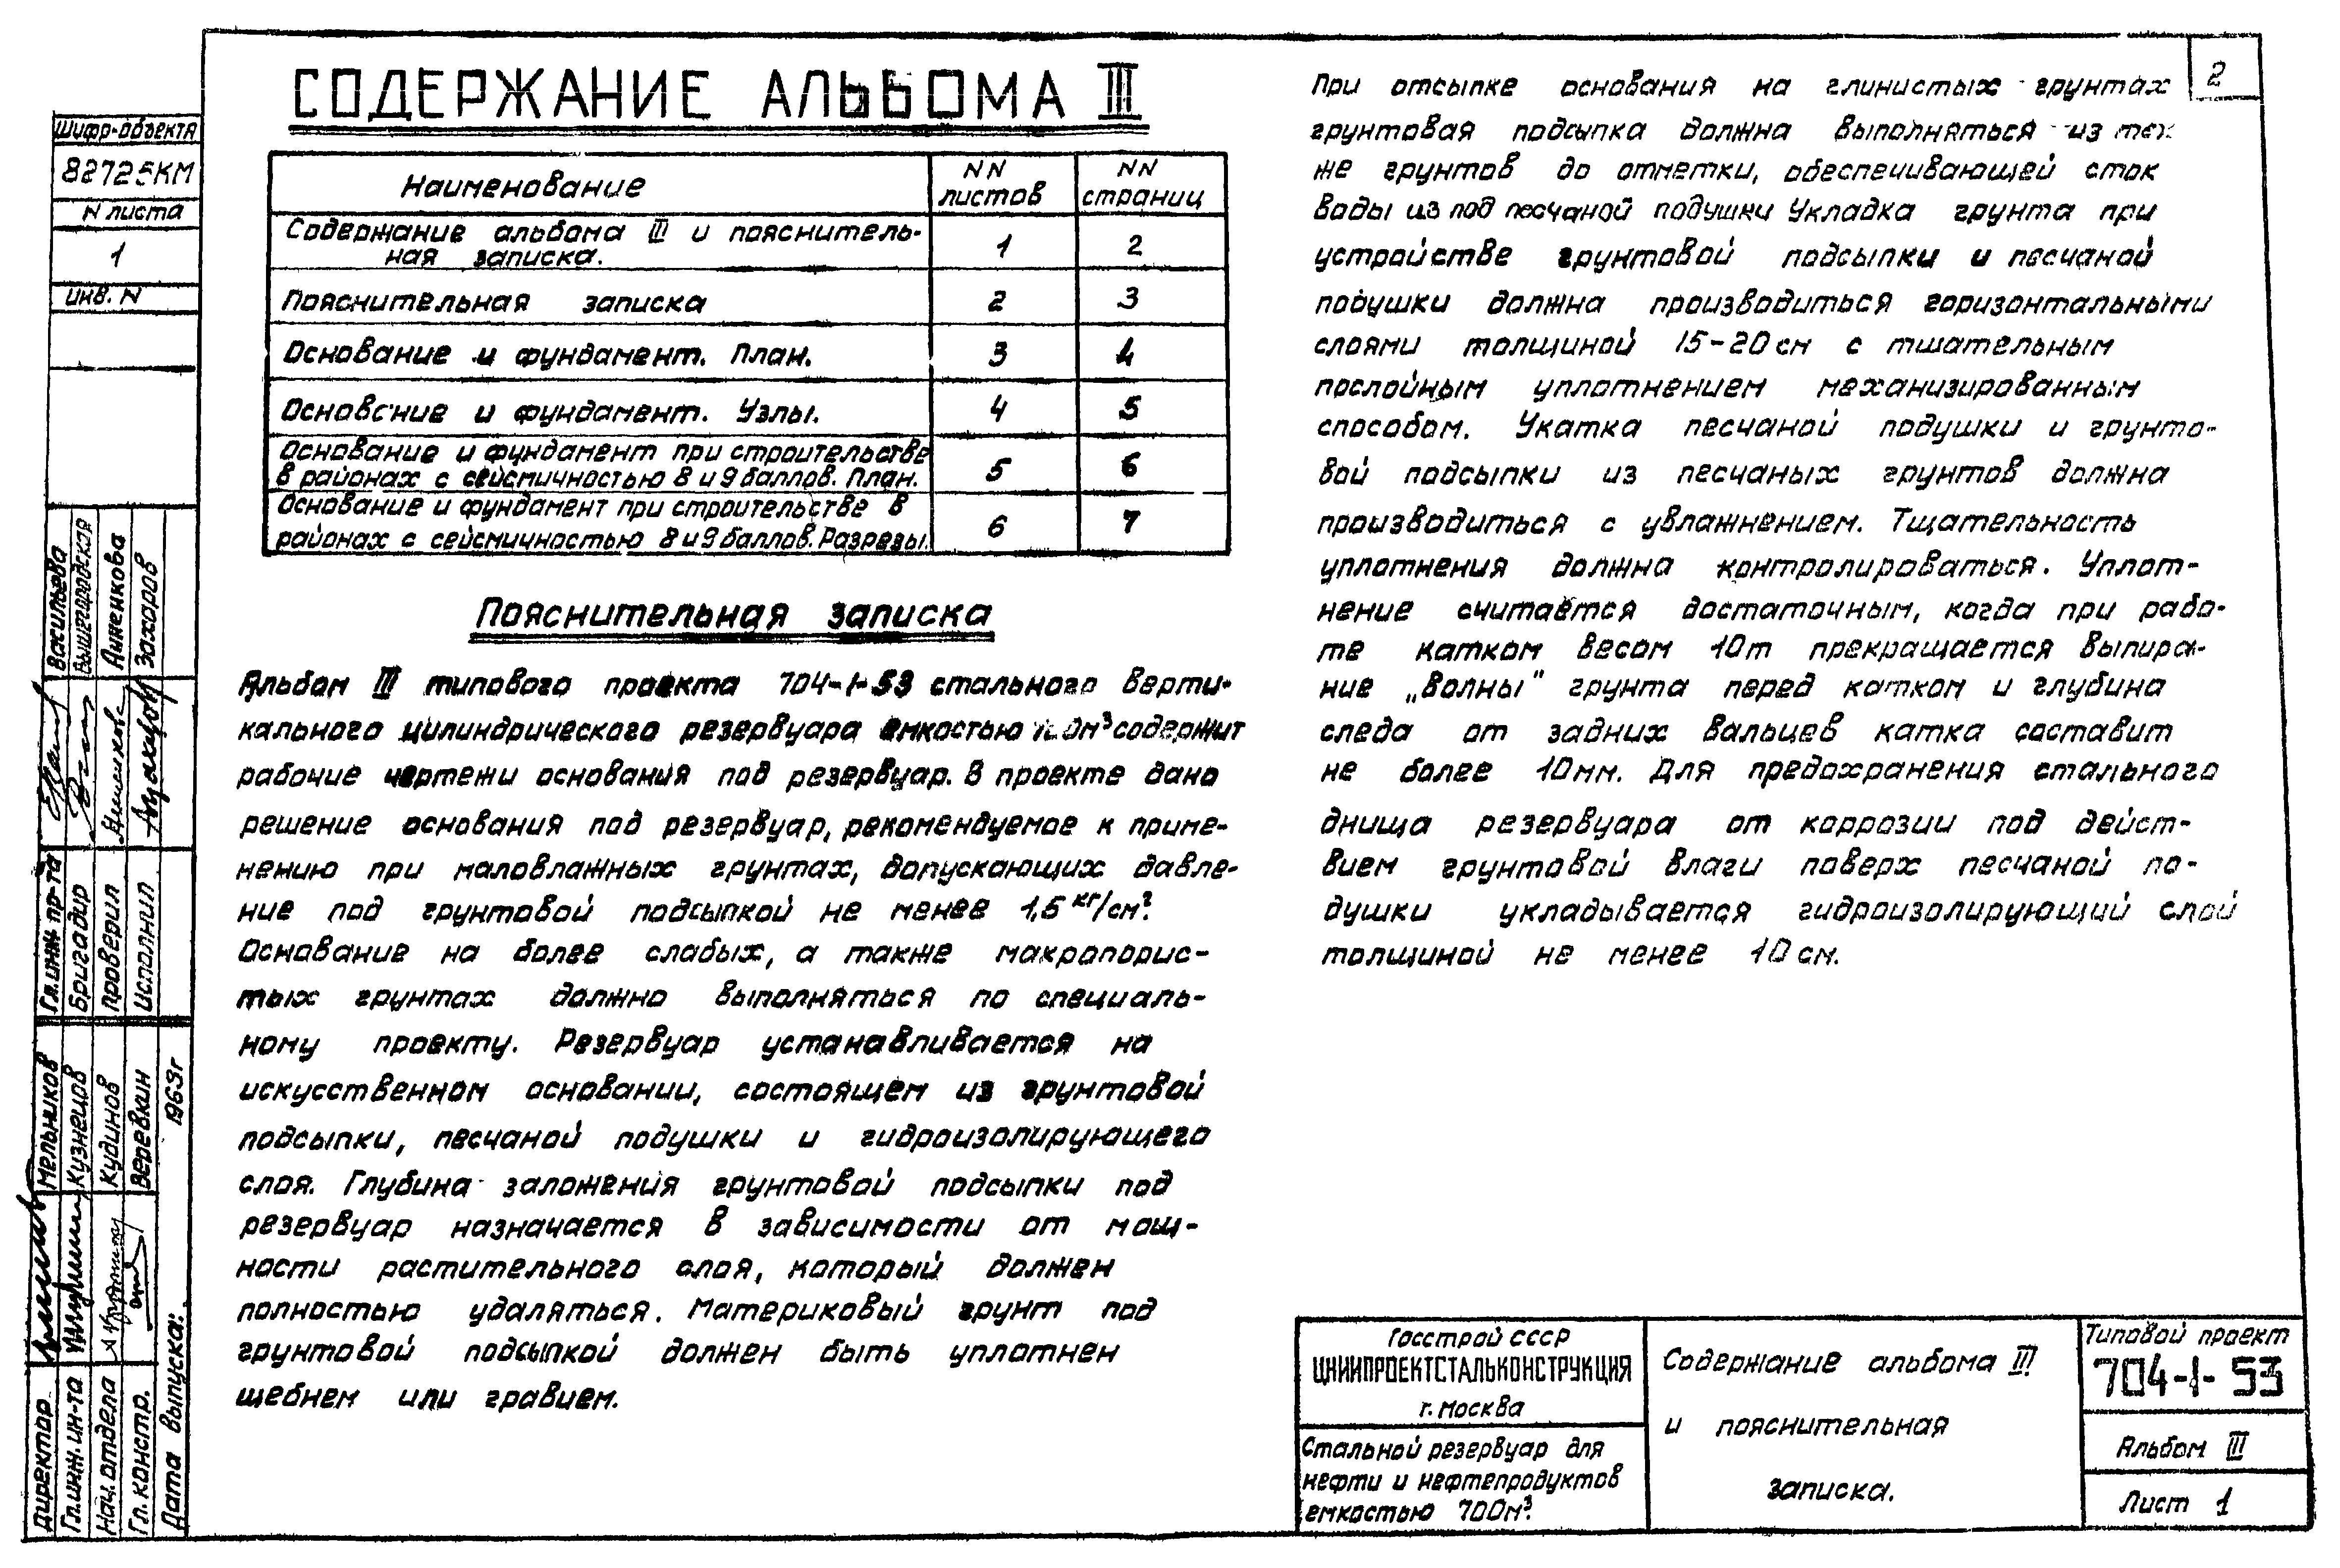 СОДЕРЖАНИЕ АЛЬБОМА III
Наименование
NN листов
NN страниц
Содержание альбома III и пояснитель-
ная записка.
1
2
Пояснительная записка
2
3
Основание и фундамент. План.
3
4
Основание и фундамент. Узлы.
4
5
Основание и фундамент при строительстве
в районах с сейсмичностью 8 и 9 баллов. План.
5
6
Основание и фундамент при строительстве в
районах с сейсмичностью 8 и 9 баллов. Разрезы.
6
7
Пояснительная записка
Альбом III типового проекта 704-1-53 стального верти-
кального цилиндрического резервуара емкостью м³ содержит
рабочие чертежи основания под резервуар. В проекте дано
решение основания под резервуар, рекомендуемое к приме-
нению при маловлажных грунтах, допускающих давле-
ние под грунтовой подсыпкой не менее 1,5 кг/см².
Основание на более слабых, а также макропорис-
тых грунтах должно выполняться по специаль-
ному проекту. Резервуар устанавливается на
искусственном основании, состоящем из грунтовой
подсыпки, песчаной подушки и гидроизолирующего
слоя. Глубина заложения грунтовой подсыпки под
резервуар назначается в зависимости от мощ-
ности растительного слоя, который должен
полностью удаляться. Материковый грунт под
грунтовой подсыпкой должен быть уплотнен
щебнем или гравием.
2
При отсыпке основания на глинистых грунтах
грунтовая подсыпка должна выполняться из тех
же грунтов до отметки, обеспечивающей сток
воды из под песчаной подушки Укладка грунта при
устройстве грунтовой подсыпки и песчаной
подушки должна производиться горизонтальными
слоями толщиной 15-20 см с тшательным
послойным уплотнением механизированным
способом. Укатка песчаной подушки и грунто-
вой подсыпки из песчаных грунтов должна
производиться с увлажнением. Тщательность
уплотнения должна контролироваться. Уплот-
нение считается достаточным, когда при рабо-
те катком весом 10т прекращается выпира-
ние „волны" грунта перед катком и глубина
следа от задних вальцев катка составит
не более 10мм. Для предохранения стального
днища резервуара от коррозии под дейст-
вием грунтовой влаги поверх песчаной по-
душки укладывается гидроизолирующий слой
толщиной не менее 10 см.
Госстрой СССР
ЦНИИПРОЕКТСТАЛЬКОНСТРУКЦИЯ
г. Москва
Стальной резервуар для
нефти и нефтепродуктов
емкостью 700м³.
Содержание альбома III
и пояснительная
записка.
Типовой проект
704-1-53
Альбом III
Лист 1
Шифр-объекта
82725КМ
N листа
1
Инв. N
Гл.инж. пр-та Васильева
Бригадир Вышегородская
Проверил Анненкова
Исполнил Захаров
Директор Мельников
Гл.инж.ин-та Кузнецов
Нач. отдела Кудинов
Гл. констр. Веревкин
Дата выпуска: 1969г